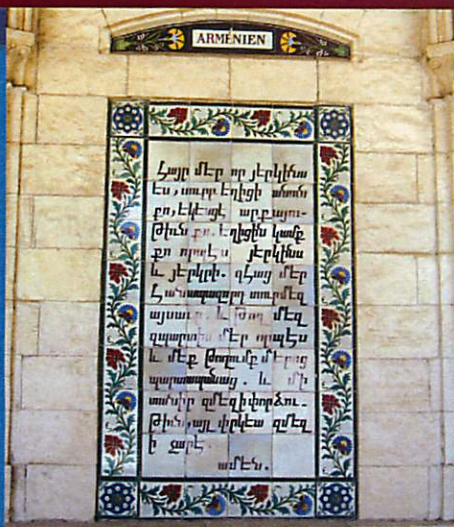 ARMÉNIEN
Հայր մէր որ յերկինս
ես, սուրբ եղիցի անուն
քո, եկեսցէ արքայու-
թիւն քո. եղիցին կամք
քո որպէս յերկինս
և յերկրի. զհաց մէր
հանապազորդ տուրմէզ
այսաւր. և թող մէզ
զպարտիս մէր որպէս
և մէք թողումք մէրոց
պարտապանաց. և մի
տանիր զմէզ ի փորձու-
թիւն, այլ փրկեա զմէզ
ի չարէ.
ամէն.